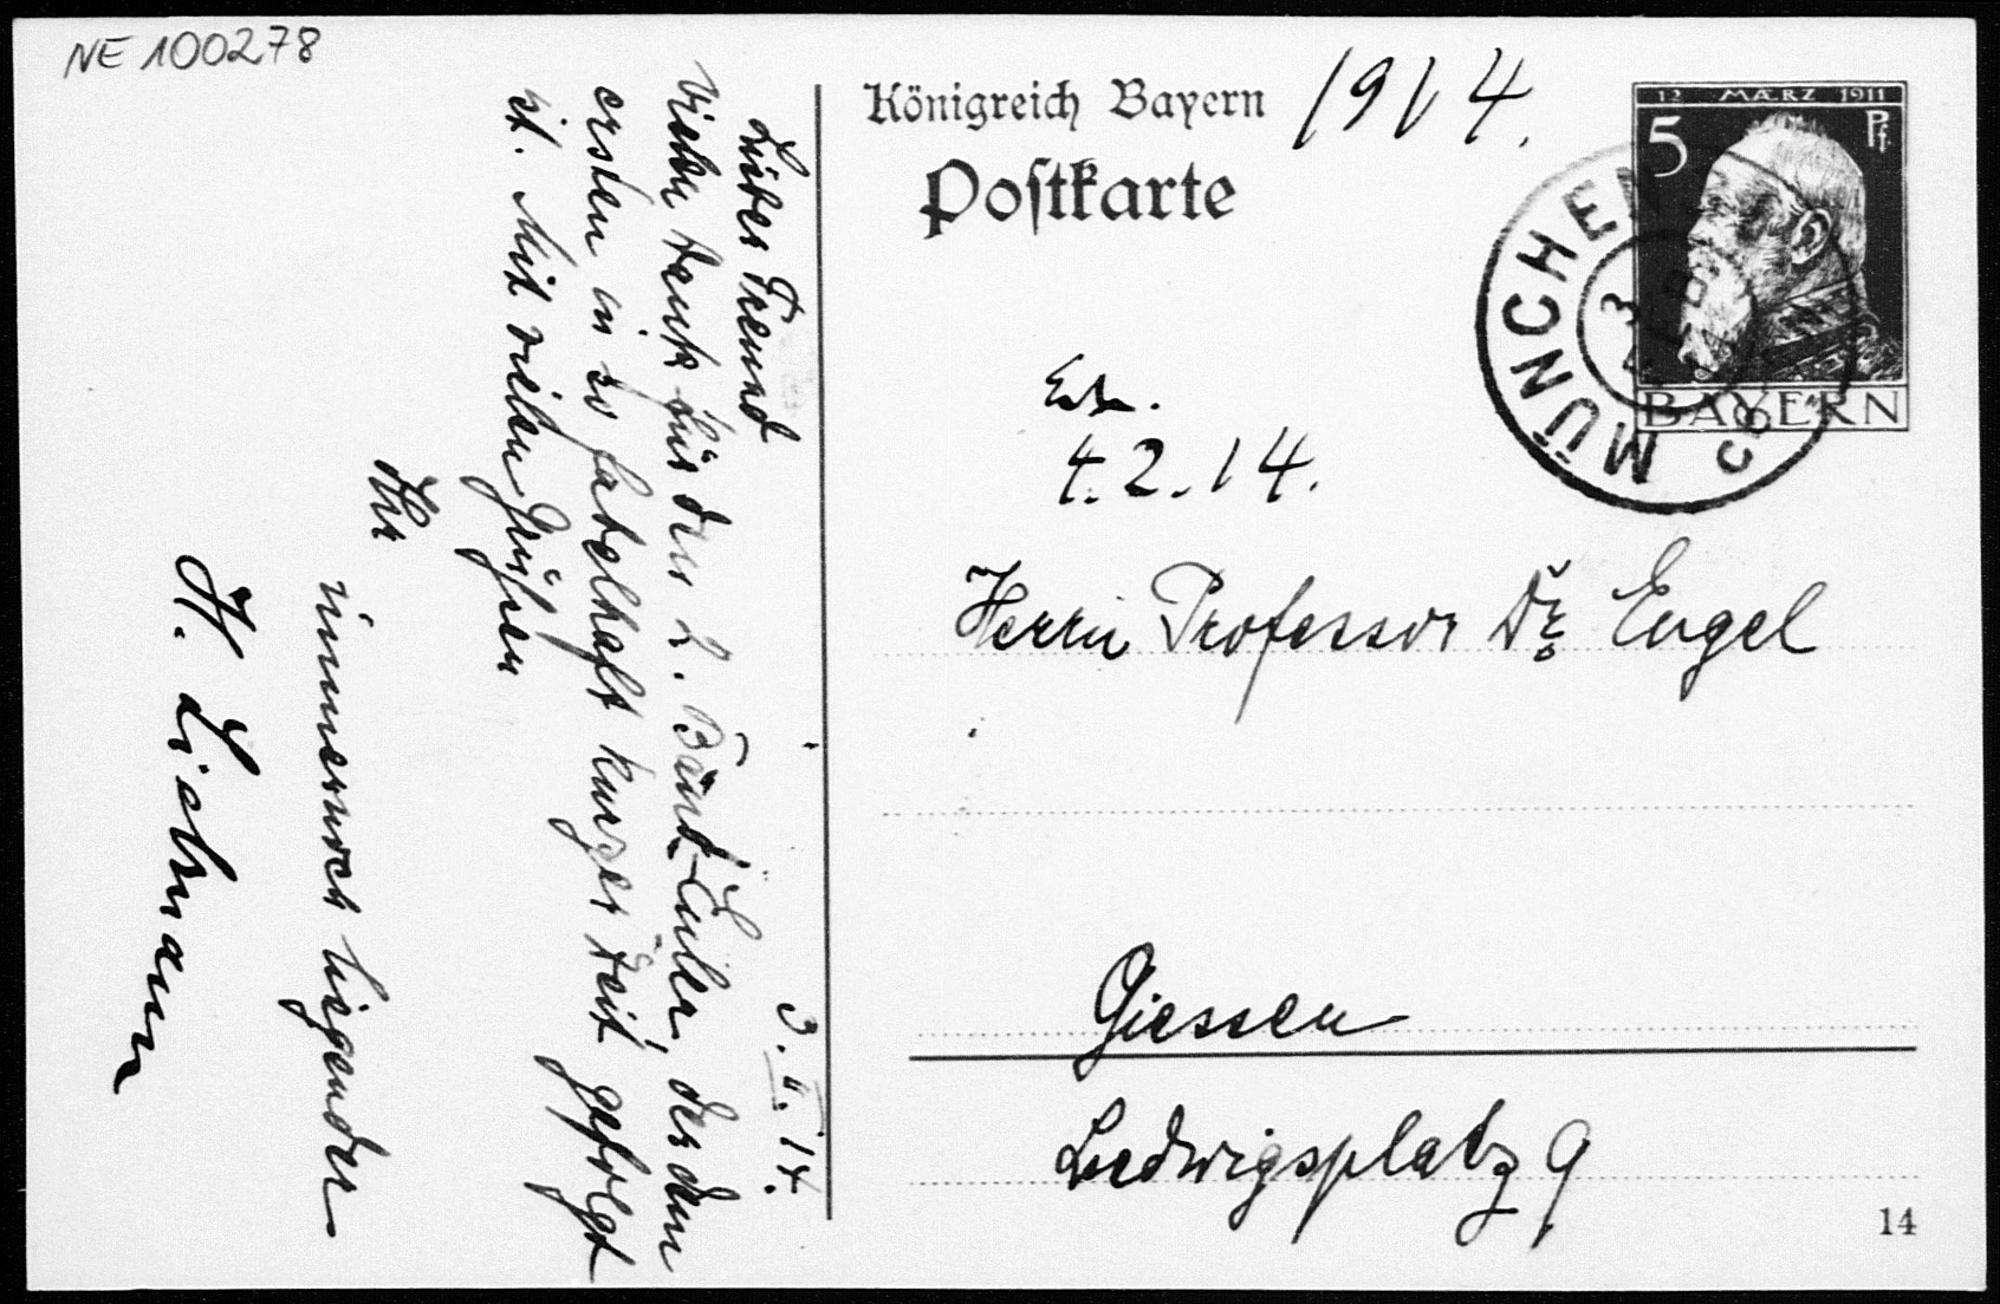 NE 100278
3. II. 14.
Lieber Freund
Vielen Dank für den 2. Band Euler, der dem
ersten in so fabelhaft kurzer Zeit gefolgt
ist. Mit vielen Grüßen
Ihr
immernoch liegender
H. Liebmann
Königreich Bayern
1914.
Postkarte
12 MÆRZ 1911
5 Pf
BAYERN
MÜNCHEN
3
4.2.14.
Herrn Professor Dr. Engel
Giessen
Ludwigsplatz 9
14